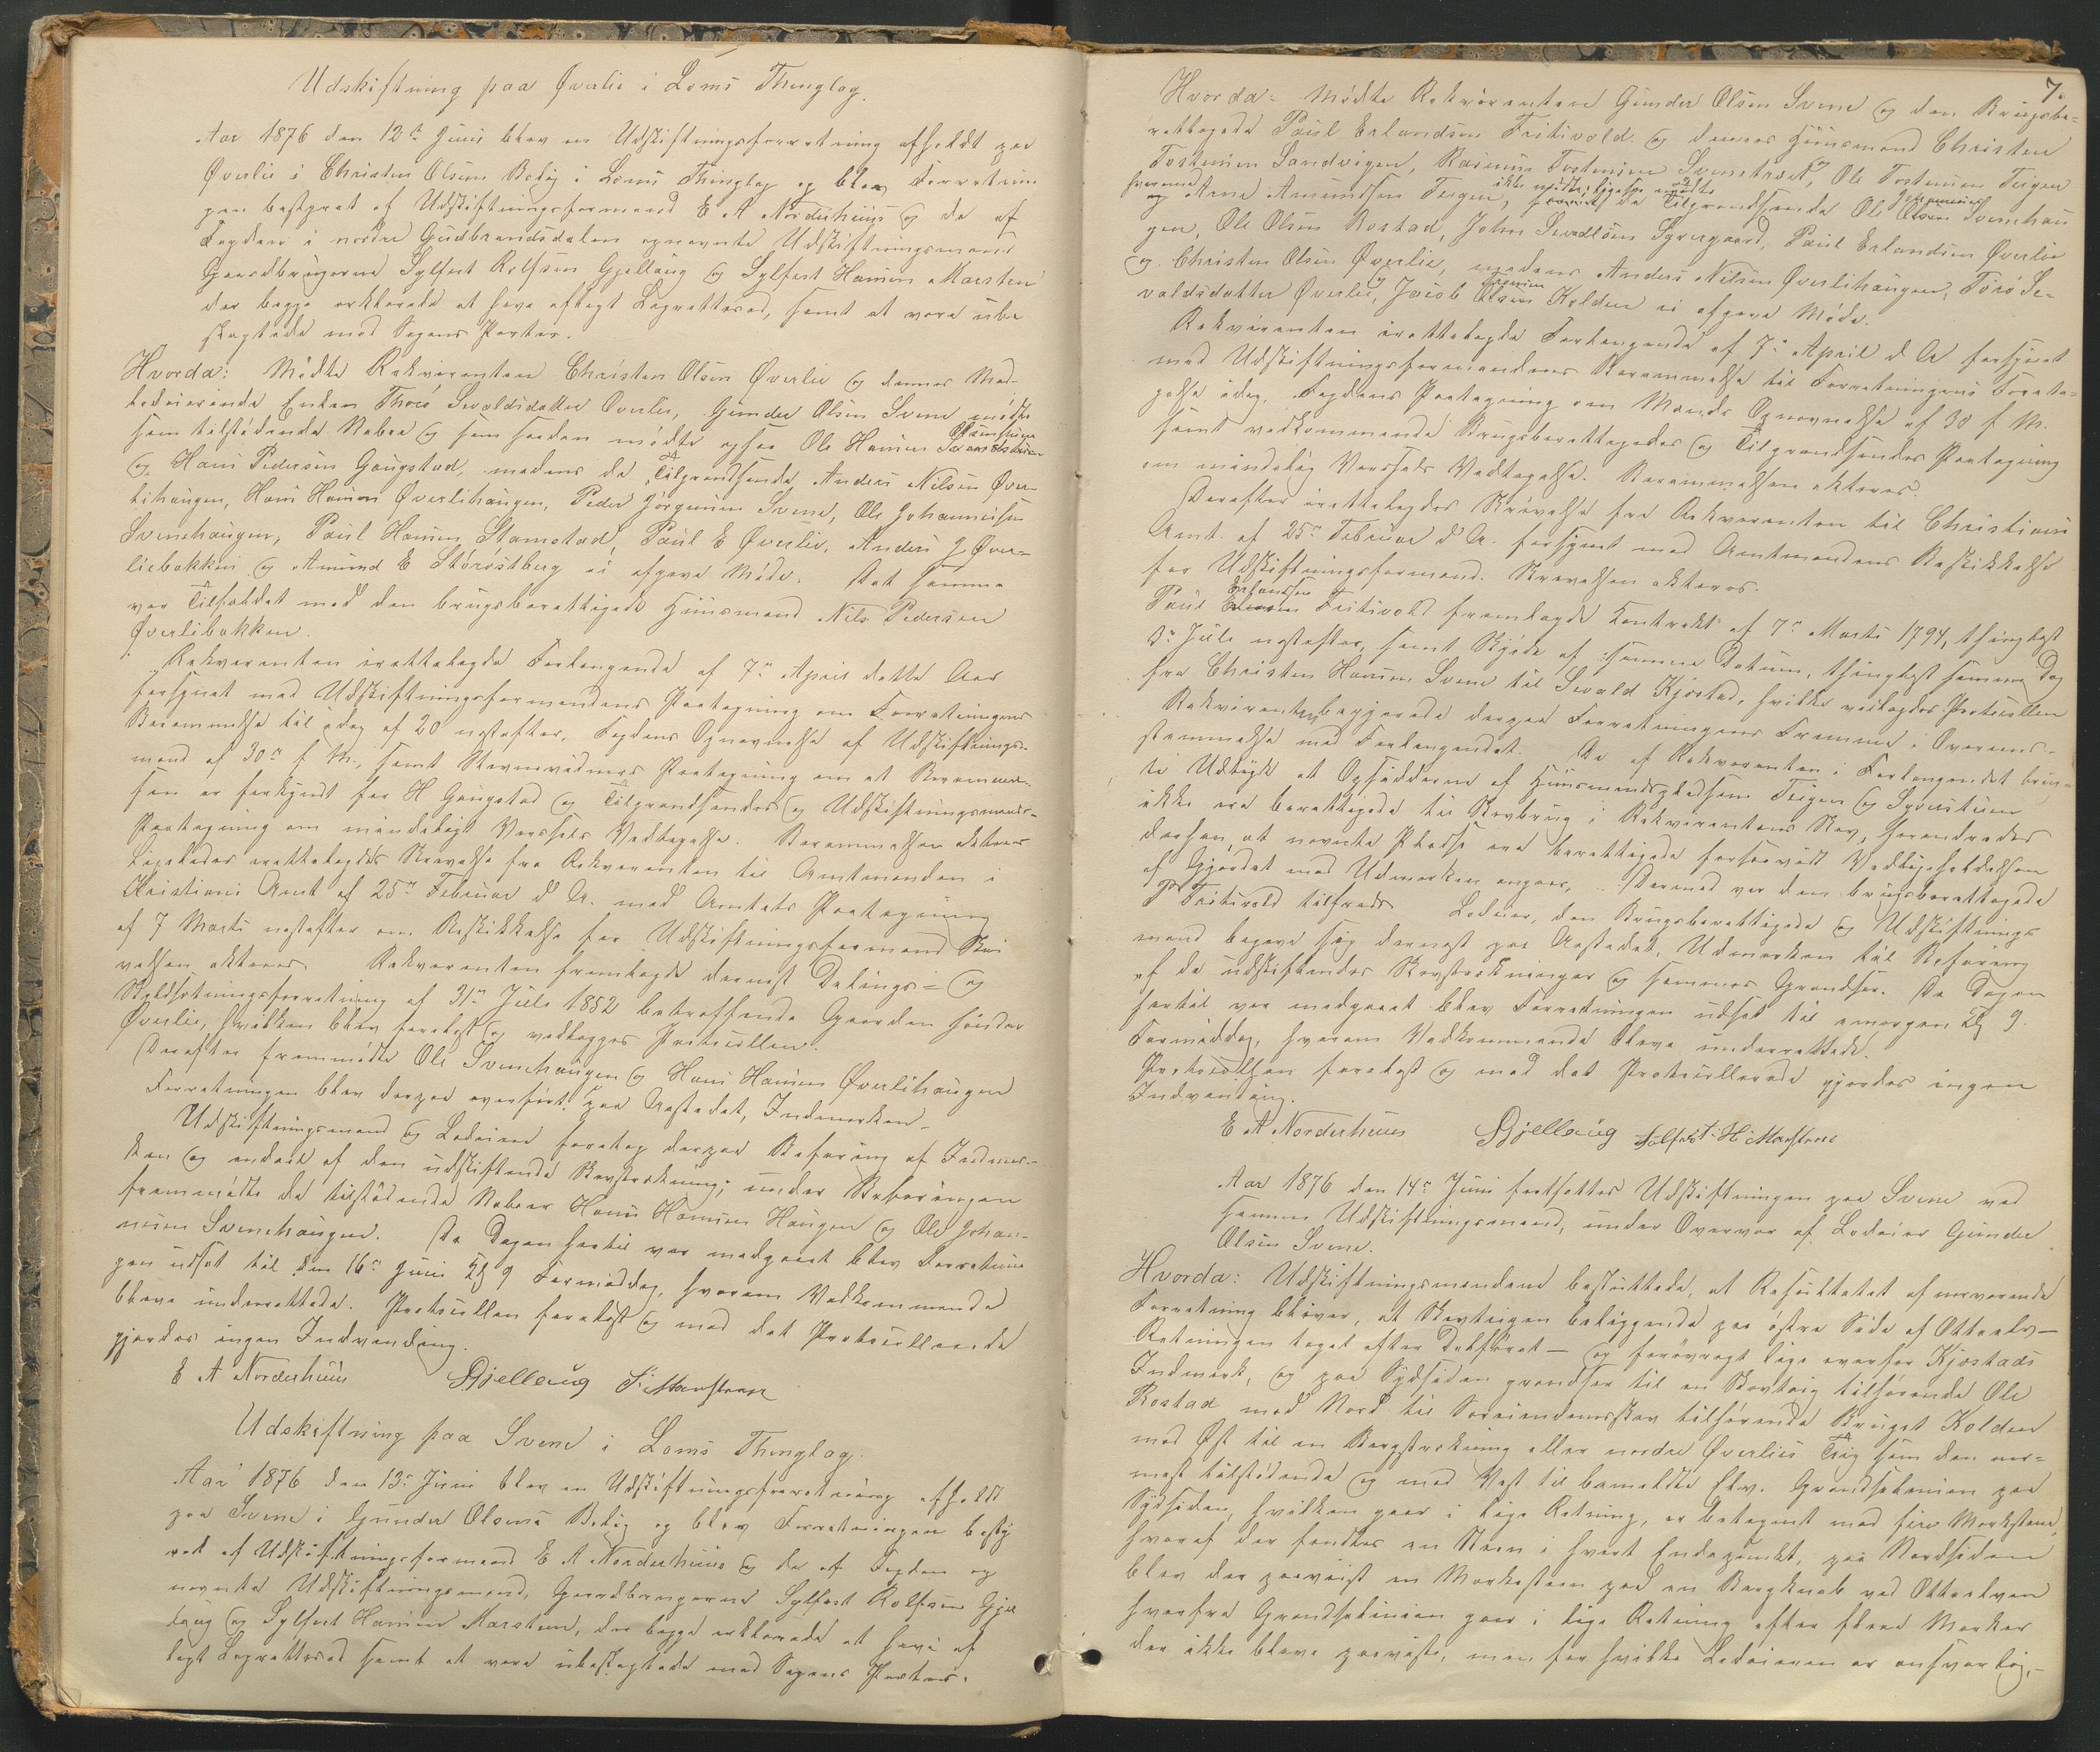 Udskiftning paa Øverlie i Loms Thinglag.
Aar 1876 den 12te Juni blev en Udskiftningsforretning afholdt paa
Øverlie i Christen Olsens Bolig i Loms Thinglag og blev Forretnin
gen bestyret af Udskiftningsformand E A Norderhuus og de af
Fogden i nordre Gudbrandsdalen opnævnte Udskiftningsmænd
Gaardbrugerne Sylfest Rolfsen Gjellaug og Sylfest Hansen Marsten
der begge erklærede at have aflagt Lagrettesed, samt at være ube
slægtede med Sagens Parter.
Hvorda: Mødte Rekvirenten Christen Olsen Øverlie og dennes Med-
lodeierinde Enken Thorø Sevaldsdatter Øverlie, Gunder Olsen Svene mødte
som tilstødende Naboe og som saadan mødte ogsaa Ole Hansen
og Hans Pedersen Gaugstad, medens de Tilgrændsende Anders Nilsen Øver-
lihaugen, Hans Hansen Øverlihaugen, Peder Jørgensen Svene, Ole Johannessen
Svenehaugen, Paul Hansen Stamstad, Paul E Øverlie, Anders J Øver-
liebakken og Amund E Storøstberg ei afgave Møde. Det samme
var Tilfældet med den brugsberettigede Huusmand Nils Pedersen
Øverlibakken.
Rekvirenten irettelagde Forlangende af 7de April dette Aar
forsynet med Udskiftningsformandens Paategning om Forretningens
Berammelse til idag af 20 næstefter, Fogdens Opnævnelse af Udskiftnings-
mænd af 30te f. M., samt Stevnevidners Paategning om at Berammel-
sen er forkyndt for H Gaugstad og Tilgrændsendes og Udskiftningsmænds-
Paategning om mundtligt Varsels Vedtagelse. Berammelsen akteres
Ligeledes irettelagdes Skrivelse fra Rekvirenten til Amtmanden i
Kristians Amt af 25de Februar d. A. med Amtets Paategning
af 7 Marts næstefter om Beskikkelse for Udskiftningsformand Skri
velsen akteres. Rekvirenten fremlagde dernæst Delings= og
Skyldsætningsforretning af 31te Juli 1852 betræffende Gaarden søndre
Øverlie, hvilken blev forelæst og vedlægges Protocollen.
Derefter fremmødte Ole Svenehaugen og Hans Hansen Øverlihaugen
Forretningen blev derpaa overført paa Aastedet, Indmarken.
Udskiftningsmænd og Lodeiere foretog derpaa Befaring af Indmar-
ken og endeel af den udskiftende Skovstrækning; under Befaringen
fremmødte de tilstødende Naboer Hans Hansen Haugen og Ole Johan-
nesen Svenehaugen. Da Dagen hertil var medgaaet blev Forretnin
gen udsat til den 16de Juni Kl 9 Formiddag, hvorom Vedkommende
bleve underrettede. Protocollen forelæst og mod det Protocollerede
gjordes ingen Indvending.
E A Norderhuus Gjellaug S. Marsteen
Udskiftning paa Svene i Loms Thinglag.
Aar 1876 den 13de Juni blev en Udskiftningsforretning afholdt
paa Svene i Gunder Olsens Bolig og blev Forretningen besty
ret af Udskiftningsformand E A Norderhuus og de af Fogden op
nævnte Udskiftningsmænd, Gaardbrugerne Sylfest Rolfsen Gjel
laug og Sylfest Hansen Marsteen, der begge erklærede at have af
lagt Lagrettesed samt at være ubeslægtede med Sagens Parter.
7.
Hvorda: Mødte Rekvirenten Gunder Olsen Svene og den Brugsbe-
rettigede Paul Erlandsen Tritivold og dennes Huusmænd Christen
Tostensen Sandvigen, Rasmus Tostensen Svenetræet, og Ole Tostensen Teigen
hvorimod Arne Amundsen Teigen, ikke mødte; ligesaa mødte de Tilgrændsende Ole Johannesen Svenehau
gen, Ole Olsen Rostad, John Syvergaard, Paul Erlandsen Øverlie
og Christen Olsen Øverlie, medens Anders Nilsen Øverlihaugen, Torø Se-
valdsdatter Øverlie, og Jacob Iversen Kolden ei afgave Møde.
Rekvirenten irettelagde Forlangende af 7de April d A forsynet
med Udskiftningsformandens Berammelse til Forretningens Foreta-
gelse idag, Fogdens Paategning om Mænds Opnævnelse af 30 f. M.
samt vedkommende Brugsberettigedes og Tilgrændsendes Paategning
om mundtlig Varsels Vedtagelse. Berammelsen akteres.
Derefter irettelagdes Skrivelse fra Rekvirenten til Christians
Amt af 25de Februar d A. forsynet med Amtmandens Beskikkelse
for Udskiftningsformand. Skrivelsen akteres.
Paul Erlandsen Tritivold fremlagde Kontrakt af 7de Marts 1794, thinglæst
3de Juli næstefter, samt Skjøde af samme Datum, thinglæst samme Dag
fra Christen Hansen Svene til Sevald Kjøstad, hvilke vedlægges Protocollen
Rekvirenten begjærede derpaa Forretningens Fremme i Overens-
stemmelse med Forlangendet. De af Rekvirenten i Forlangendet brug-
te Udtryk at Opsidderne af Huusmandspladsene Teigen og Syverstuen
ikke ere berettigede til Skovbrug i Rekvirentens Skov, forandredes
derhen, at nævnte Pladse ere berettigede forsaavidt Vedligeholdelsen
af Gjærdet mod Udmarken angaar. Dermed var den brugsberettigede
P Tritivold tilfreds. Lodeier, den Brugsberettigede og Udskiftnings
mænd begave sig dernæst paa Aastedet, Udmarken til Befaring
af de udskiftendes Skovstrækninger og sammes Grændser. Da Dagen
hertil var medgaaet blev Forretningen udsat til imorgen Kl 9
Formiddag, hvorom Vedkommende bleve underrettede.
Protocollen forelæst og mod det Protocollerede gjordes ingen
Indvending.
E A Norderhuus Gjellaug Sylfest H. Marsteen
Aar 1876 den 14de Juni fortsattes Udskiftningen paa Svene ved
samme Udskiftningsmænd, under Overvær af Lodeier Gunder
Olsen Svene.
Hvorda: Udskiftningsmændene besluttede, at Resultatet af nærværende
Forretning bliver, at Skovteigen beliggende paa østre Side af Ottaelv—
Retningen taget efter Dalføret — og forøvrigt lige overfor Kjøstads
Indmark, og paa Sydsiden grændser til en Skovteig tilhørende Ole
Rostad mod Nord til Sameiendomsskov tilhørende Bruget Kolden
mod Øst til en Bergstrækning eller nordre Øverlies Teig som den nær-
mest tilstødende og mod Vest til bemeldte Elv. Grændselinien paa
Sydsiden, hvilken gaar i lige Retning, er betegnet med fire Merkestene,
hvoraf der findes en Steen i hvert Endepunkt, paa Nordsiden
blev der paaviist en Merkesteen paa en Bergknab ved Ottaelven
hvorfra Grændselinien gaar i lige Retning efter flere Merker
der ikke bleve paaviste, men for hvilke Lodeieren er ansvarlig,-